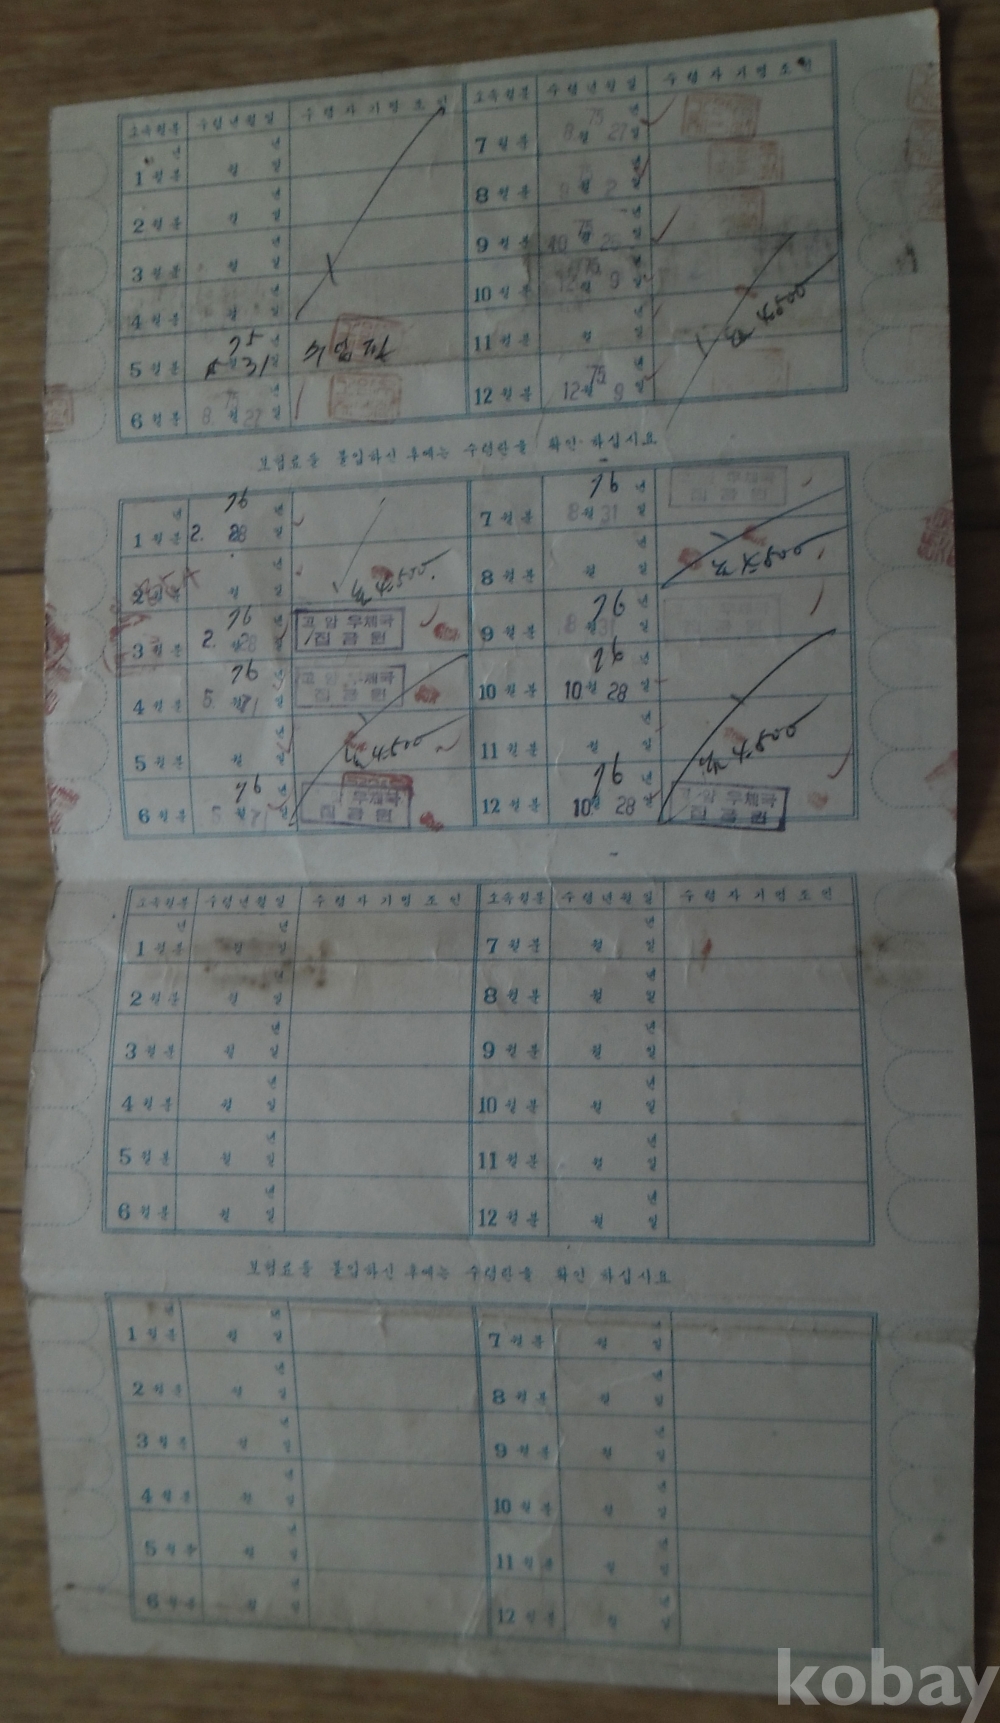 소속월분 수령년월일 수령자기명조인 소속월분 수령년월일 수령자기명조인
년 년 75 년
1 월분 월 일 7 월분 8 월 27 일
년 년
2 월분 월 일 8 월분 9 월 2 일
년 75 년
3 월분 월 일 9 월분 10 월 26 일
년 75 년
4 월분 월 일 10 월분 12 월 9 일
75 년 년
5 월분 월 31 일 11 월분 월 일
4500
75 년 75 년
6 월분 8 월 27 일 12 월분 12 월 9 일
보험료를 불입하신 후에는 수령란을 확인 하십시요
년 76 년 76 년
1 월분 2. 28 일 7 월분 8 월 31 일
집금원
년 년
2 월분 월 일 8 월분 월 일
4500. 4500
76 년 76 년
3 월분 2. 월 28 일 9 월분 8 월 31 일
고암우체국
집금원
76 년 76 년
4 월분 5. 월 21 일 10 월분 10 월 28 일
고암우체국
집금원
년 년
5 월분 월 일 11 월분 월 일
4500 4500
76 년 76 년
6 월분 5 월 21 일 12 월분 10 월 28 일
고암우체국 고암우체국
집금원 집금원
소속월분 수령년월일 수령자기명조인 소속월분 수령년월일 수령자기명조인
년 년 년
1 월분 월 일 7 월분 월 일
년 년
2 월분 월 일 8 월분 월 일
년 년
3 월분 월 일 9 월분 월 일
년 년
4 월분 월 일 10 월분 월 일
년 년
5 월분 월 일 11 월분 월 일
년 년
6 월분 월 일 12 월분 월 일
보험료를 불입하신 후에는 수령란을 확인 하십시요
년 년 년
1 월분 월 일 7 월분 월 일
년 년
2 월분 월 일 8 월분 월 일
년 년
3 월분 월 일 9 월분 월 일
년 년
4 월분 월 일 10 월분 월 일
년 년
5 월분 월 일 11 월분 월 일
년 년
6 월분 월 일 12 월분 월 일
kobay